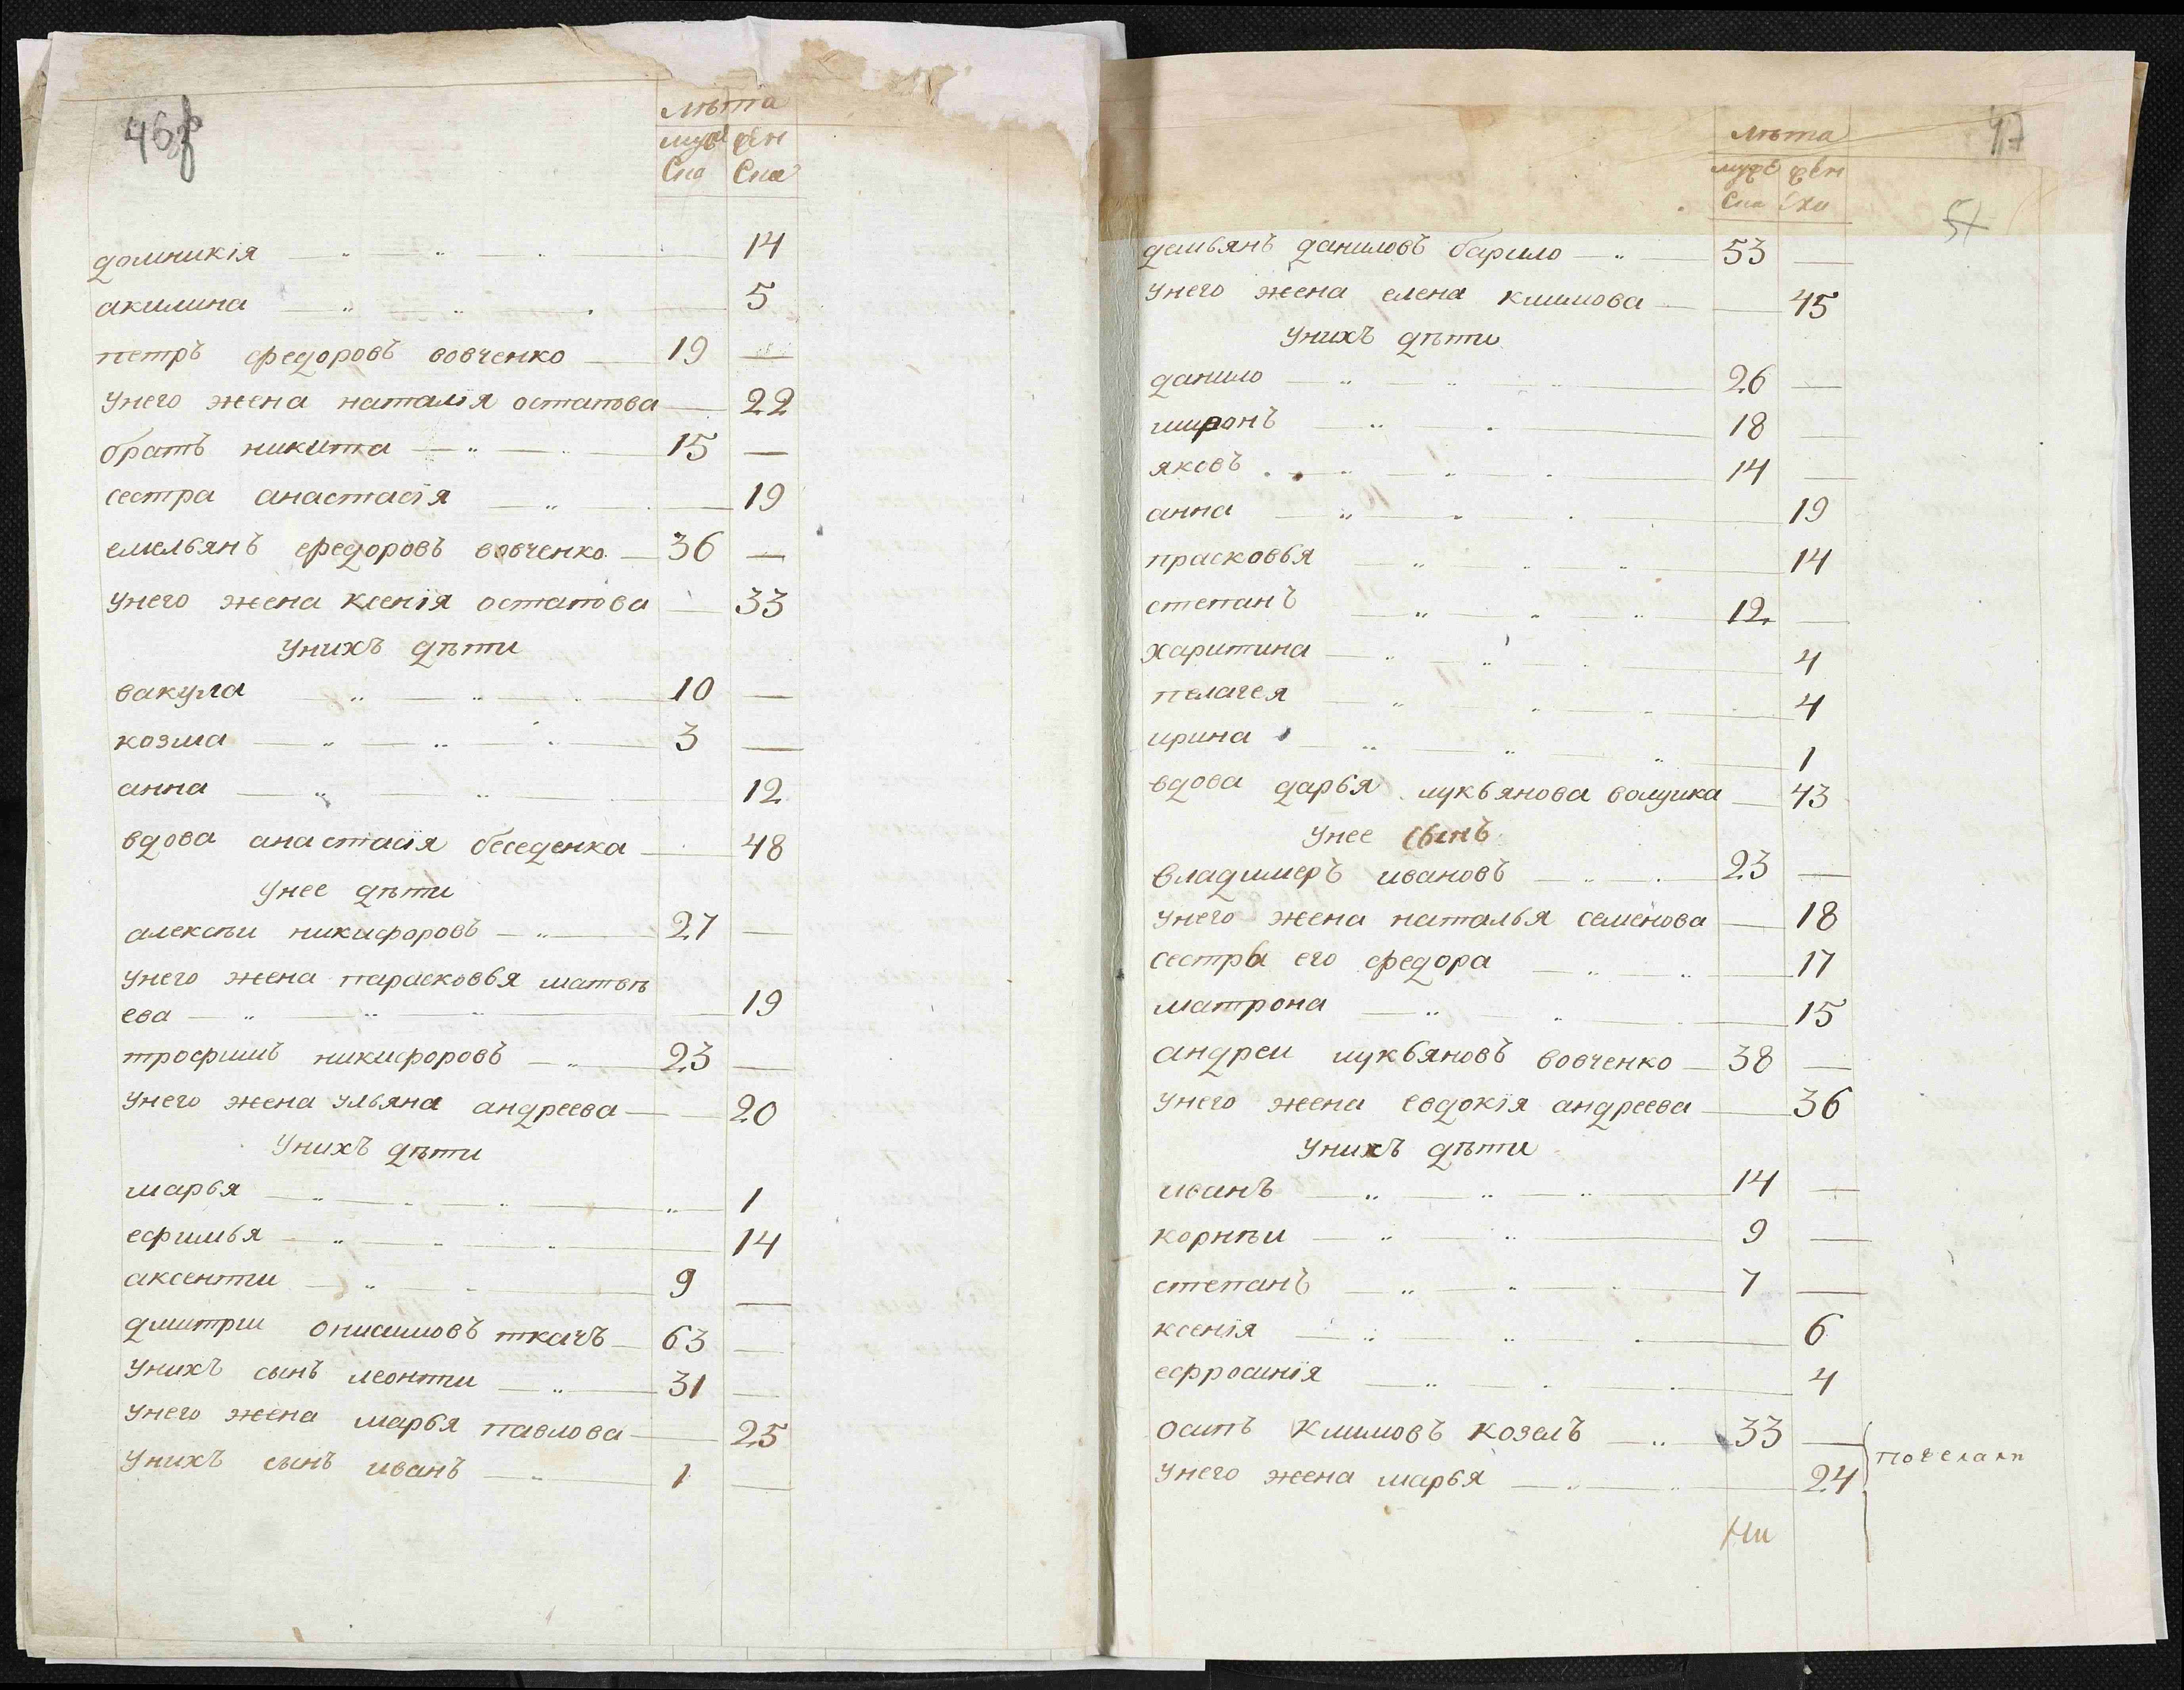 46
лѣта
муж жен
ска ска
домникія 14
акилина 5
петръ федоровъ вовченко 19 —
унего жена наталія остапова 22
братъ никита 15 —
сестра анастасія 19
емельянъ федоровъ вовченко 36 —
унего жена ксенія остапова 33
унихъ дѣти
вакула 10 —
козма 3 —
анна 12
вдова анастасія беседенка 48
унее дѣти
алексѣи никифоровъ 27 —
унего жена парасковья матвѣ
ева 19
трофимъ никифоровъ 23 —
унего жена ульяна андреева 20
унихъ дѣти
марья 1
ефимья 14
аксенти 9 —
дмитрии онисимовъ ткачъ 63 —
унихъ сынъ леонти 31 —
унего жена марья павлова 25
унихъ сынъ иванъ 1 —
47
51
лѣта
муже жен
ска ска
демьянъ даниловъ барило 53 —
унего жена елена климова 45
унихъ дѣти
данило 26 —
миронъ 18 —
яковъ 14 —
анна 19
прасковья 14
степанъ 12 —
харитина 4
пелагея 4
ирина 1
вдова дарья лукьянова волчика 43
унее сынъ
владимеръ ивановъ 23 —
унего жена наталья семенова 18
сестры его федора 17
матрона 15
андреи лукьяновъ вовченко 38 —
унего жена евдокія андреева 36
унихъ дѣти
иванъ 14 —
корнѣи 9 —
степанъ 7 —
ксенія 6
ефросинія 4
осипъ климовъ козелъ 33 —
унего жена марья 24